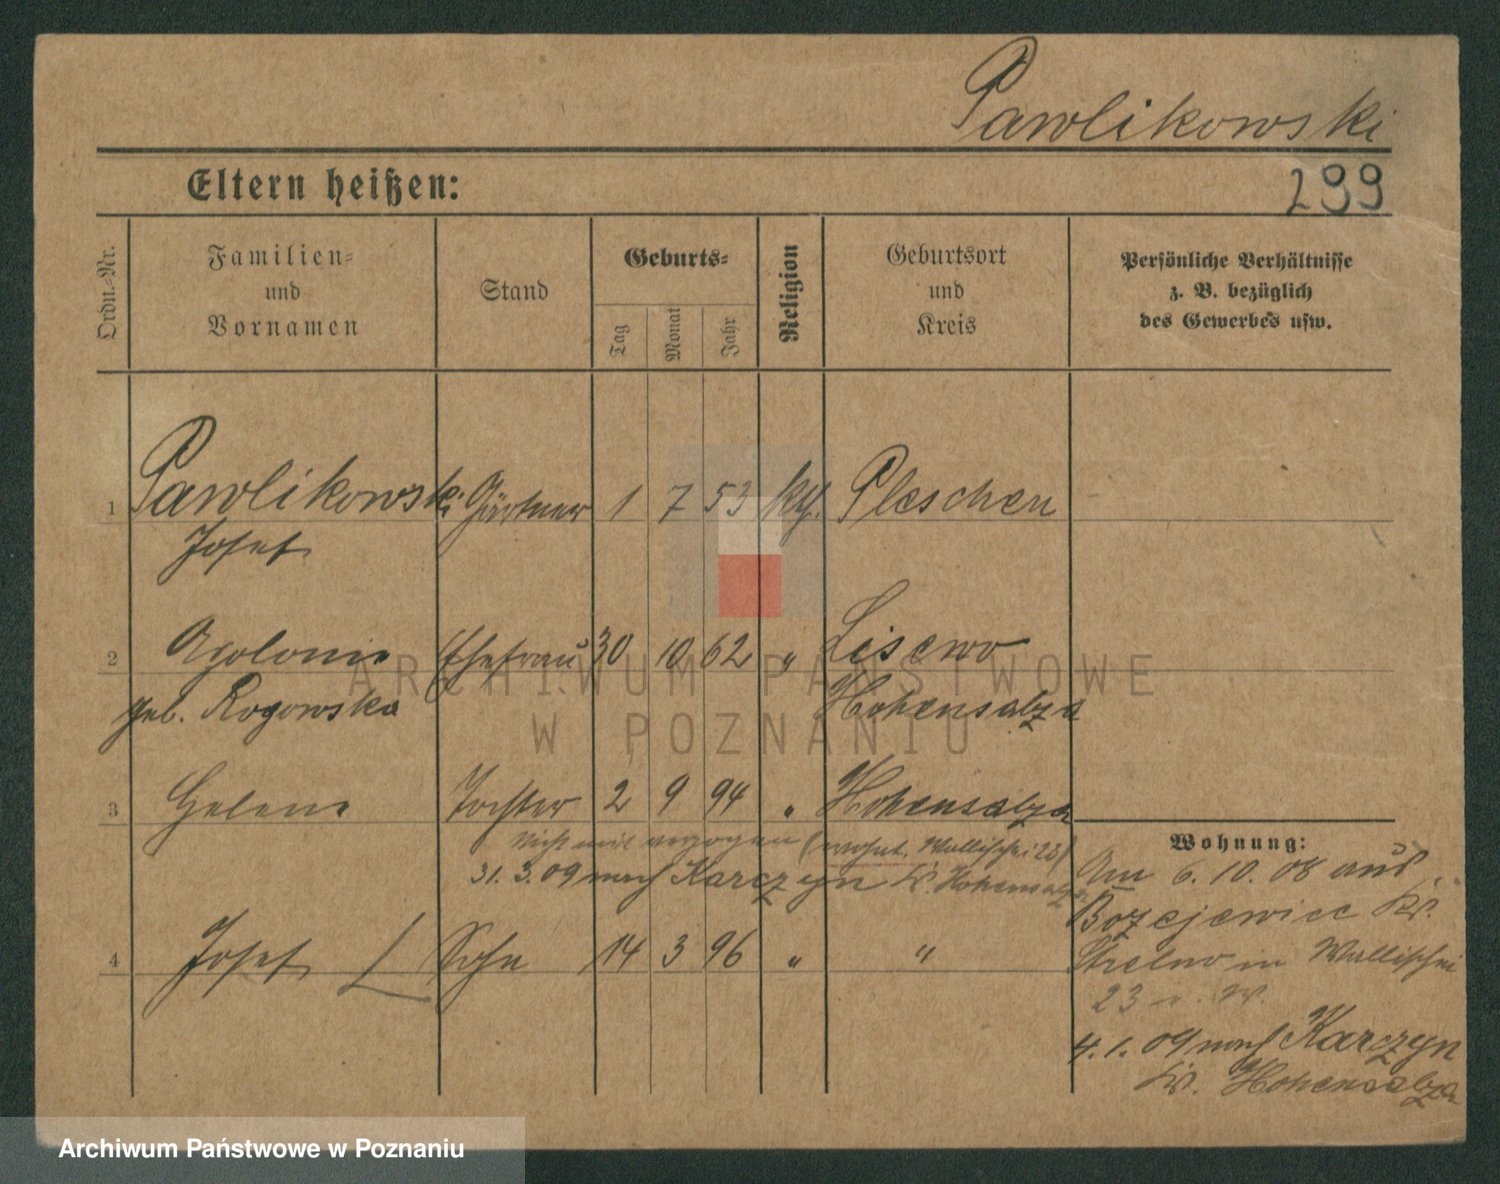 Pawlikowski
Eltern heißen:
299
Ordn.-Nr.
Familien-
und
Vornamen
Stand
Geburts-
Tag
Monat
Jahr
Religion
Geburtsort
und
Kreis
Persönliche Verhältnisse
z. B. bezüglich
des Gewerbes usw.
1 Pawlikowski Gärtner 1 7 53 kth. Pleschen
Josef
2 Apolonie Ehefrau 30 10 62 " Lisewo
geb. Rogowska Hohensalza
3 Helene Tochter 2 9 94 " Hohensalza
Nicht mit verzogen (wohnt. Wallischei 23)
31. 3. 09 nach Karczyn Kr. Hohensalza
4 Josef Sohn 14 3 96 " "
Wohnung:
Am 6. 10. 08 aus
Bozejewice Kr.
Strelno in Wallischei
23
4. 1. 09 nach Karczyn
Kr. Hohensalza
ARCHIWUM PAŃSTWOWE
W POZNANIU
Archiwum Państwowe w Poznaniu